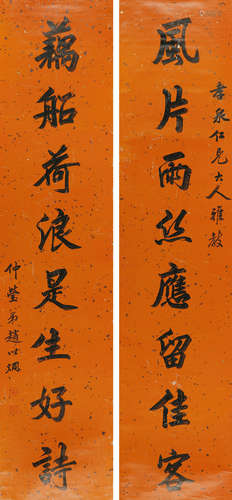 孝泉仁兄大人雅教
風片雨絲應留佳客
藕船荷浪是生好詩
仲瑩弟趙以炯